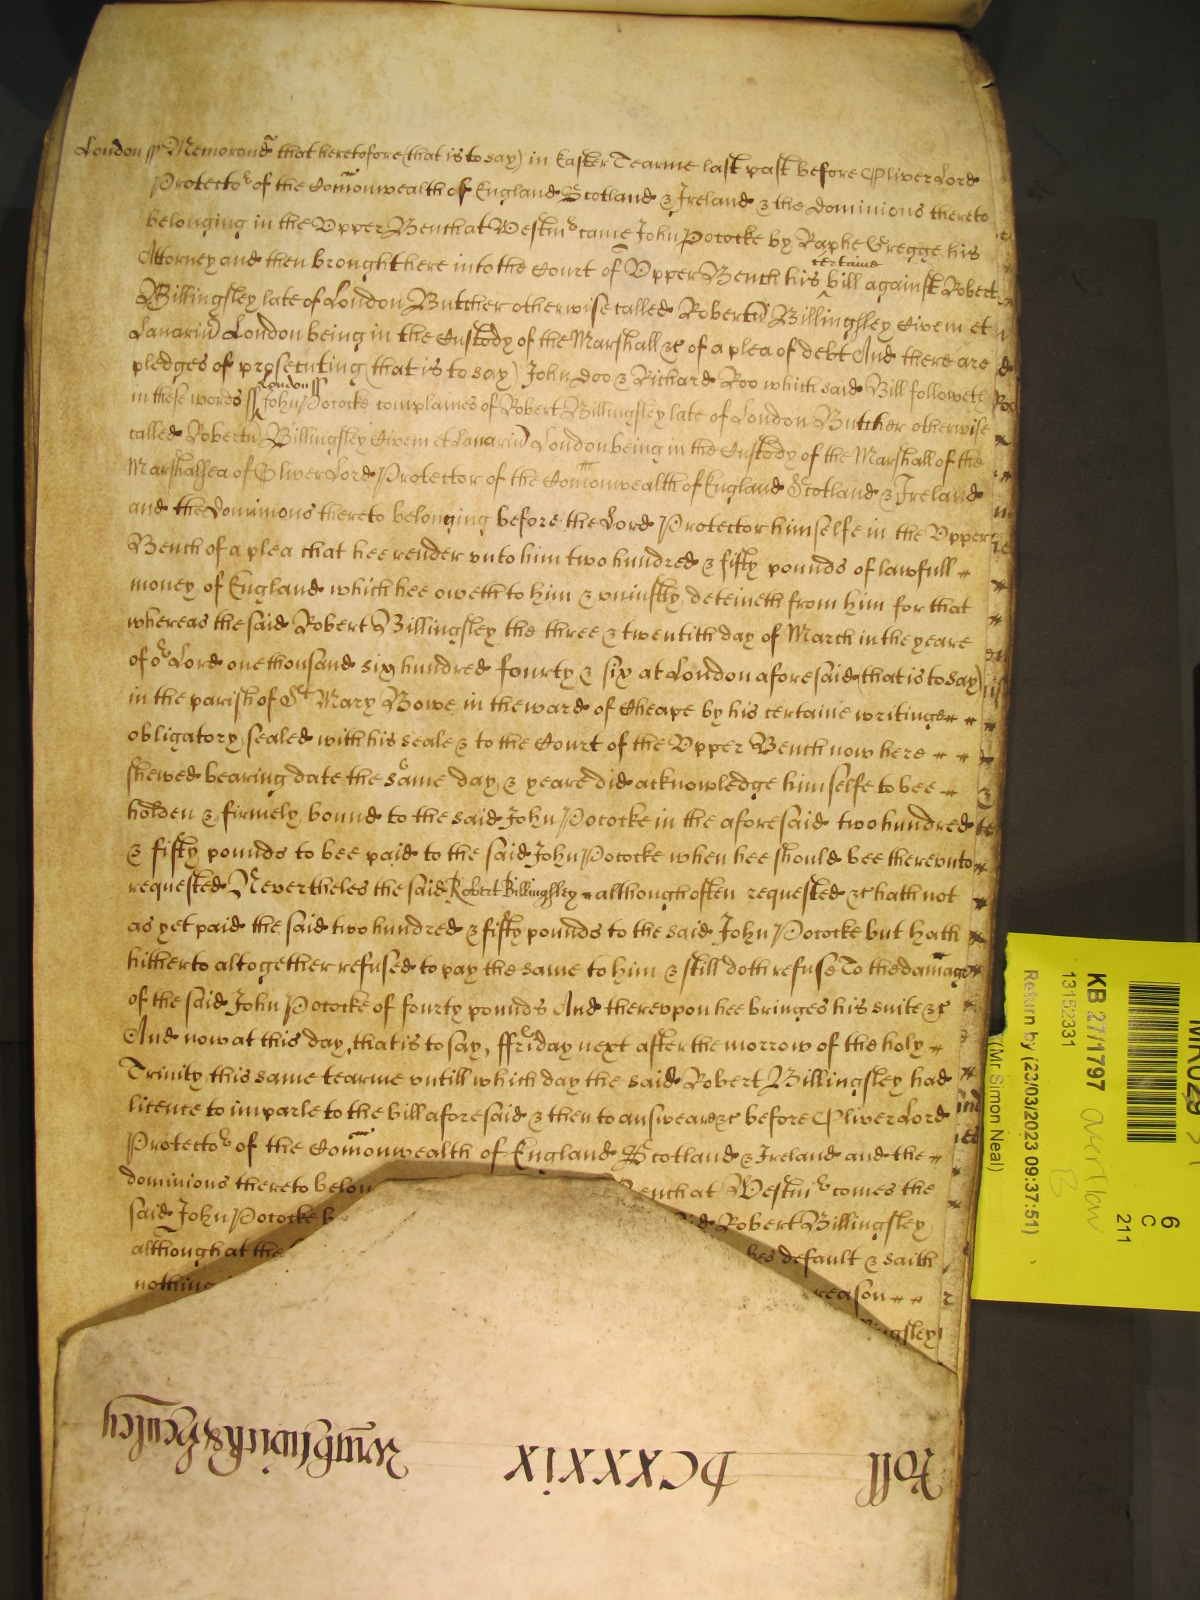 London ss Memorand that heretofore (that is to say) in Easter Tearme last past before Oliver Lord
Protector of the Comonwealth of England Scotland & Ireland & the dominions thereto
belonging in the Upper Bench at Westmr came John Pococke by Raphe Gregge his
Attorney and then brought here into the Court of Upper Bench his certaine bill against Robert
Billingsley late of London Butcher otherwise called Robertu Billinghley Civem et
Lanariu London being in the Custody of the Marshall &c of a plea of debt And there are
pledges of prosecuting (that is to say) John Doo & Richard Roo which said Bill followeth
in these words ss London ss John Pococke complaines of Robert Billingsley late of London Butcher otherwise
called Robertu Billingsley Civem et Lanariu London being in the Custody of the Marshall of the
Marshalsea of Oliver Lord Protector of the Comonwealth of England Scotland & Ireland
and the Dominions thereto belonging before the Lord Protector himselfe in the Upper
Bench of a plea that hee render unto him two hundred & fifty pounds of lawfull
money of England which hee oweth to him & uniustly deteineth from him for that
whereas the said Robert Billingsley the three & twentith day of March in the yeare
of or Lord one thousand six hundred fourty & six at London aforesaid (that is to say)
in the parish of St Mary Bowe in the ward of Cheape by his certaine writinge
obligatory sealed with his seale & to the Court of the Upper Bench now here
shewed bearing date the same day & yeare did acknowledge himselfe to bee
holden & firmely bound to the said John Pococke in the aforesaid two hundred
& fifty pounds to bee paid to the said John Pococke when hee should bee thereunto
requested Nevertheles the said Robert Billinghley although often requested &c hath not
as yet paid the said two hundred & fifty pounds to the said John Pococke but hath
hitherto altogether refused to pay the same to him & still doth refuse To the damage
of the said John Pococke of fourty pounds And thereupon hee bringes his suite &c
And now at this day, that is to say, ffriday next after the morrow of the holy
Trinity this same tearme untill which day the said Robert Billingsley had
licence to imparle to the bill aforesaid & then to answeare &c before Oliver Lord
Protector of the Comonwealth of England Scotland & Ireland and the
dominions thereto belon Bench at Westmr comes the
said John Pococke Robert Billingsley
although at the default & saith
nothing reason
ingsley
Roll
DCXXXIX
KB 27/1797
13152331
Return by (23/03/2023 09:37:51)
(Mr Simon Neal)
overflow
B
6
C
211